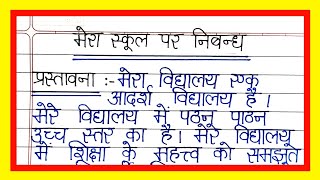 मेरा स्कूल पर निबन्ध
प्रस्तावना :- मेरा विद्यालय एक
आदर्श विद्यालय है।
मेरे विद्यालय में पठनू पाठन
उच्च स्तर का है। मेरे विद्यालय
में शिक्षा के महत्त्व को समझते